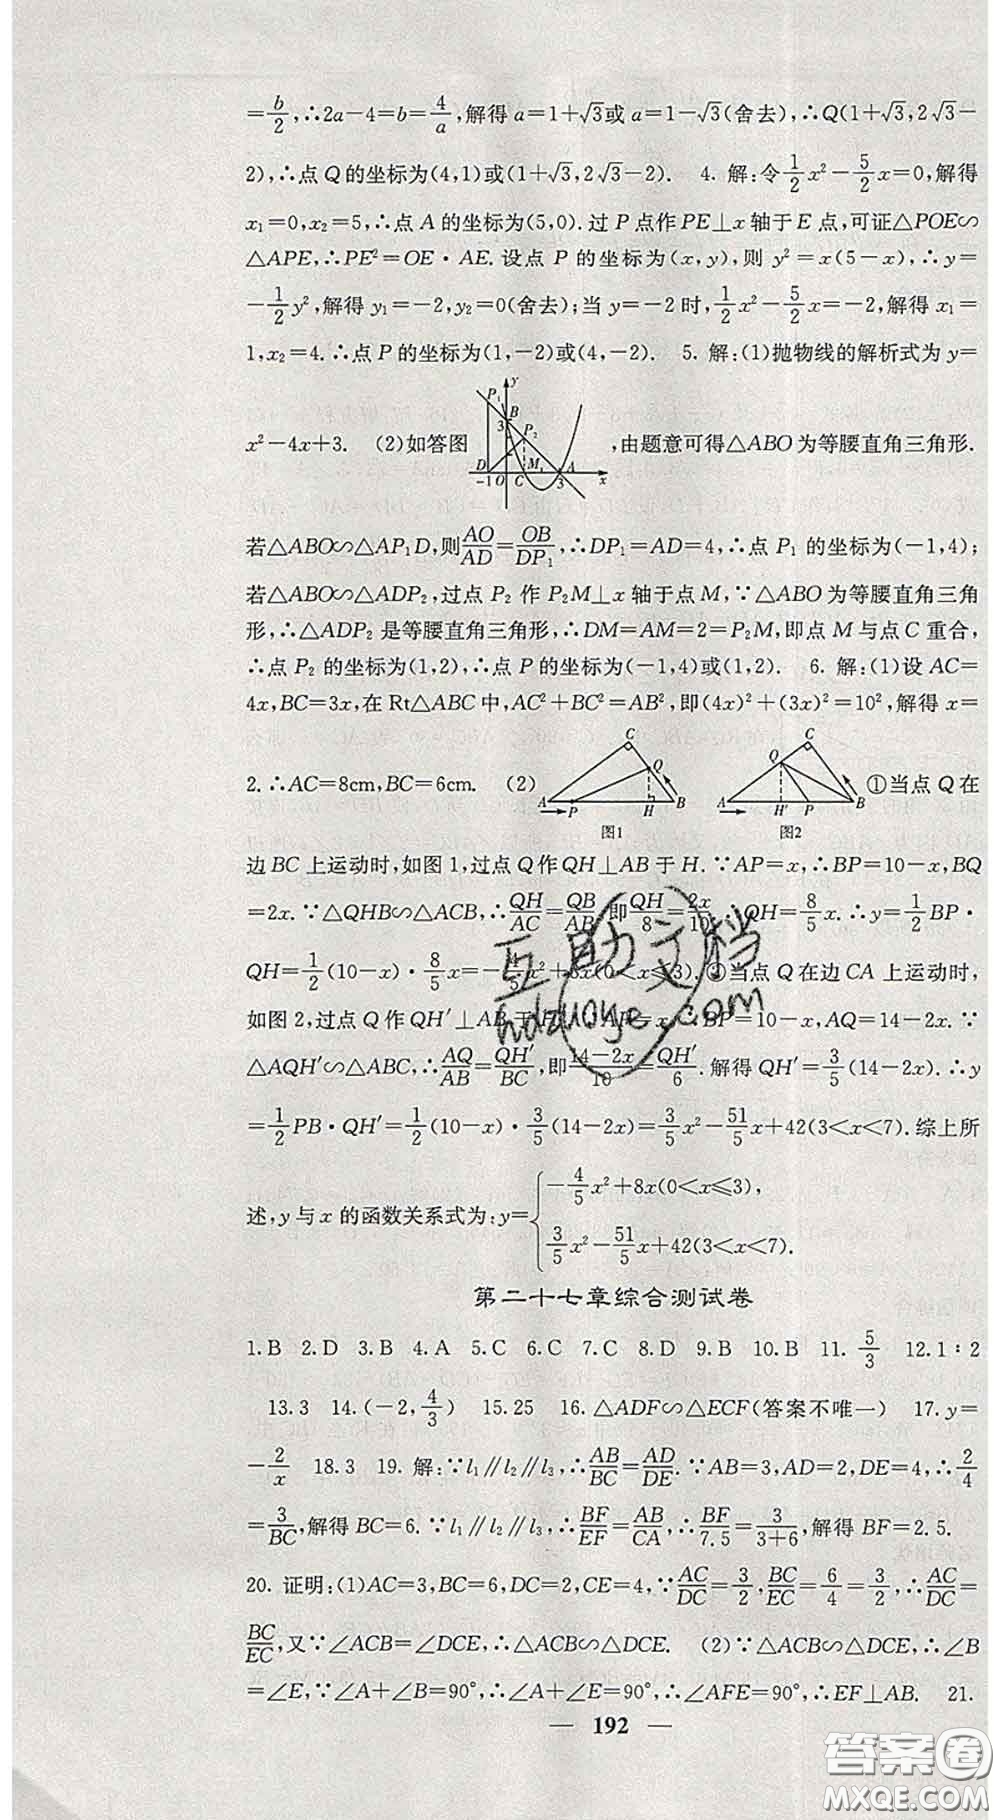 =b/2,∴2a-4=b=4/a,解得a=1+√3或a=1-√3(舍去),∴Q(1+√3,2√3-
2),∴点Q的坐标为(4,1)或(1+√3,2√3-2). 4. 解:令1/2x²-5/2x=0,解得
x₁=0,x₂=5,∴点A的坐标为(5,0).过P点作PE⊥x轴于E点,可证△POE∽
△APE,∴PE²=OE·AE.设点P的坐标为(x,y),则y²=x(5-x),∴y=
-1/2y²,解得y₁=-2,y₂=0(舍去);当y=-2时,1/2x²-5/2x=-2,解得x₁=
1,x₂=4.∴点P的坐标为(1,-2)或(4,-2). 5. 解:(1)抛物线的解析式为y=
x²-4x+3. (2)如答图
P₁ y B 3 P₂ D -1 O C M 3 A x
,由题意可得△ABO为等腰直角三角形.
若△ABO∽△AP₁D,则AO/AD=OB/DP₁,∴DP₁=AD=4,∴点P₁的坐标为(-1,4);
若△ABO∽△ADP₂,过点P₂作P₂M⊥x轴于点M,∵△ABO为等腰直角三角
形,∴△ADP₂是等腰直角三角形,∴DM=AM=2=P₂M,即点M与点C重合,
∴点P₂的坐标为(1,2),∴点P的坐标为(-1,4)或(1,2). 6. 解:(1)设AC=
4x,BC=3x,在Rt△ABC中,AC²+BC²=AB²,即(4x)²+(3x)²=10²,解得x=
2.∴AC=8cm,BC=6cm. (2)
C Q A P H B
图1
C Q A H′ P B
图2
①当点Q在
边BC上运动时,如图1,过点Q作QH⊥AB于H.∵AP=x,∴BP=10-x,BQ
=2x.∵△QHB∽△ACB,∴QH/AC=QB/AB,即QH/8=2x/10,∴QH=8/5x.∴y=1/2BP·
QH=1/2(10-x)·8/5x=-4/5x²+8x(0<x≤3).②当点Q在边CA上运动时,
如图2,过点Q作QH′⊥AB于H′,∵AP=x,∴BP=10-x,AQ=14-2x.∵
△AQH′∽△ABC,∴AQ/AB=QH′/BC,即14-2x/10=QH′/6.解得QH′=3/5(14-2x).∴y
=1/2PB·QH′=1/2(10-x)·3/5(14-2x)=3/5x²-51/5x+42(3<x<7).综上所
述,y与x的函数关系式为:y={-4/5x²+8x(0<x≤3),
3/5x²-51/5x+42(3<x<7).
第二十七章综合测试卷
1.B 2.D 3.B 4.A 5.C 6.C 7.C 8.D 9.B 10.B 11.5/3 12.1∶2
13.3 14.(-2,4/3) 15.25 16.△ADF∽△ECF(答案不唯一) 17.y=
-2/x 18.3 19.解:∵l₁∥l₂∥l₃,∴AB/BC=AD/DE.∵AB=3,AD=2,DE=4,∴2/4
=3/BC,解得BC=6.∵l₁∥l₂∥l₃,∴BF/EF=AB/CA,∴BF/7.5=3/3+6,解得BF=2.5.
20. 证明:(1)AC=3,BC=6,DC=2,CE=4,∵AC/DC=3/2,BC/EC=6/4=3/2,∴AC/DC=
BC/EC,又∵∠ACB=∠DCE,∴△ACB∽△DCE. (2)∵△ACB∽△DCE,∴∠B
=∠E,∵∠A+∠B=90°,∴∠A+∠E=90°,∴∠AFE=90°,∴EF⊥AB. 21.
— 192 —
互助文档
hdzuoye.com
答案圈
MXQE.COM